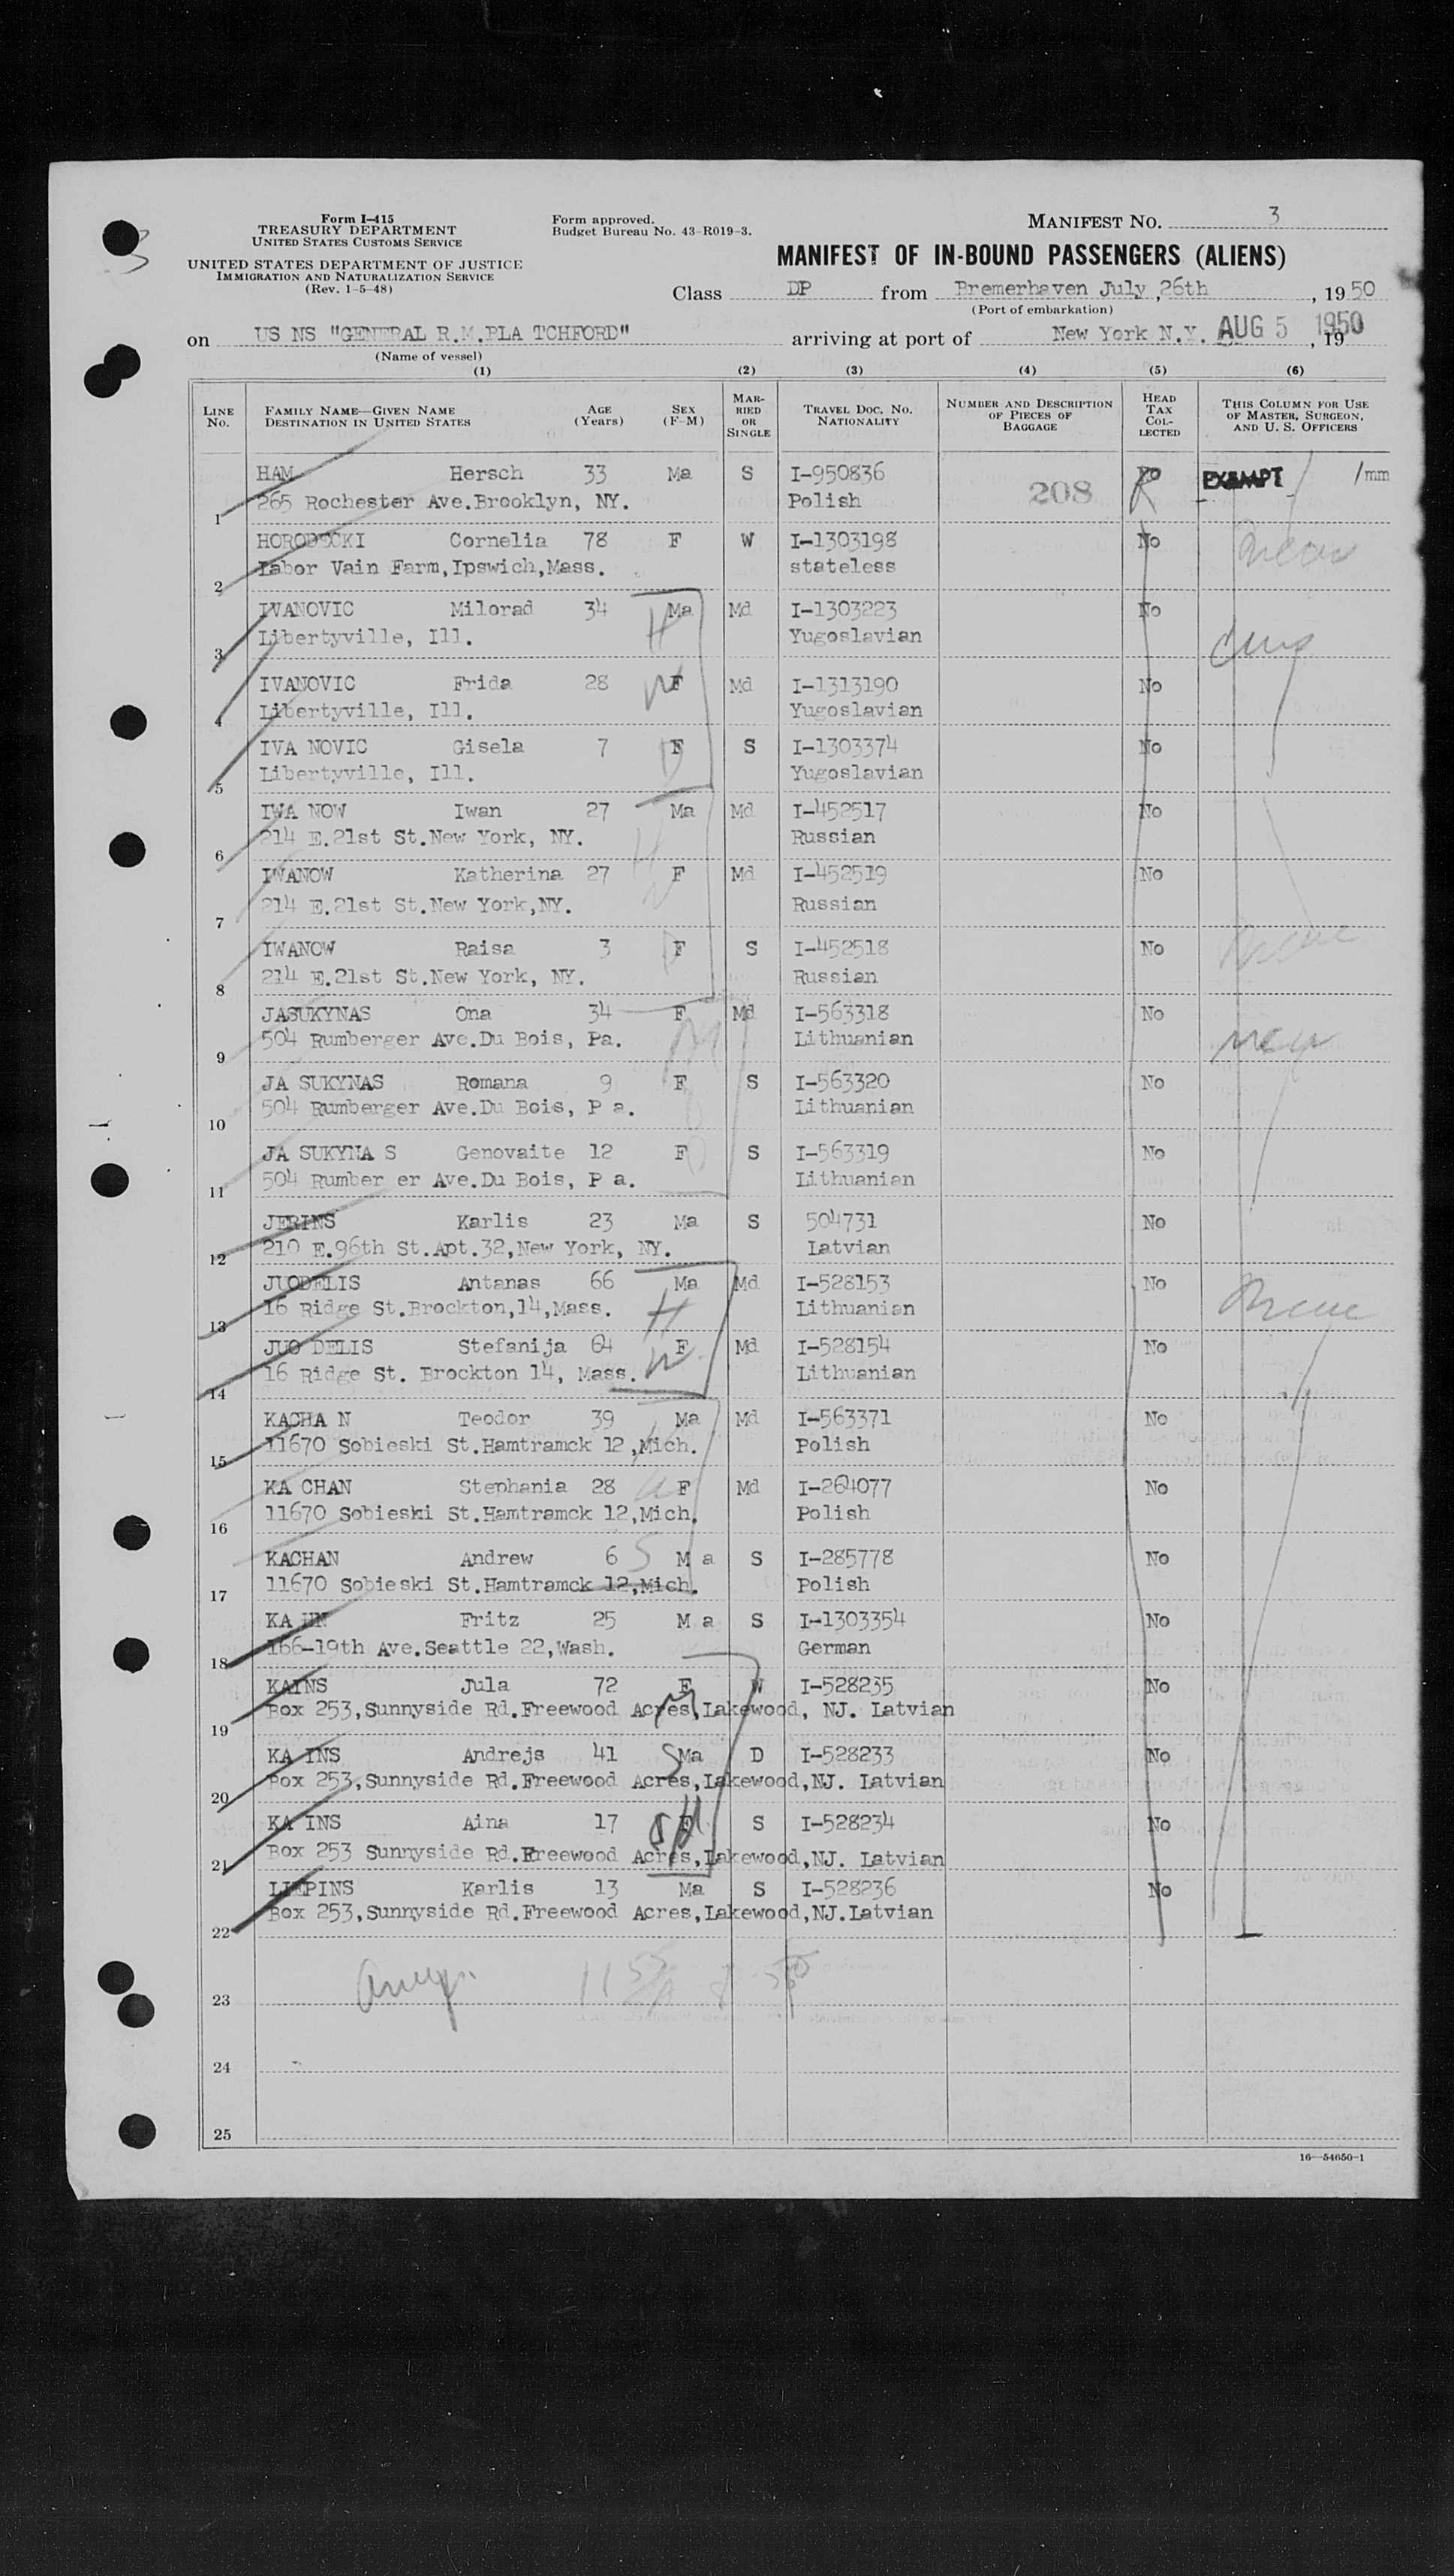 3
Form I-415
TREASURY DEPARTMENT
UNITED STATES CUSTOMS SERVICE
UNITED STATES DEPARTMENT OF JUSTICE
IMMIGRATION AND NATURALIZATION SERVICE
(Rev. 1-5-48)
Form approved.
Budget Bureau No. 43-R019-3.
MANIFEST NO. 3
MANIFEST OF IN-BOUND PASSENGERS (ALIENS)
Class DP from Bremerhaven July ,26th , 1950
(Port of embarkation)
on US NS "GENERAL R.M.BLA TCHFORD" arriving at port of New York N.Y. AUG 5 1950 , 19
(Name of vessel)
(1) (2) (3) (4) (5) (6)
LINE No. FAMILY NAME—GIVEN NAME DESTINATION IN UNITED STATES AGE (Years) SEX (F-M) MARRIED OR SINGLE TRAVEL DOC. NO. NATIONALITY NUMBER AND DESCRIPTION OF PIECES OF BAGGAGE HEAD TAX COLLECTED THIS COLUMN FOR USE OF MASTER, SURGEON, AND U. S. OFFICERS
HAM Hersch 33 Ma S I-950836 208 No EXEMPT /mm
1 265 Rochester Ave.Brooklyn, NY. Polish
HORODECKI Cornelia 78 F W I-1303198 No
2 Labor Vain Farm,Ipswich,Mass. stateless
IVANOVIC Milorad 34 Ma Md I-1303223 No
3 Libertyville, Ill. H Yugoslavian
IVANOVIC Frida 28 W F Md I-1313190 No
4 Libertyville, Ill. Yugoslavian
IVA NOVIC Gisela 7 F S I-1303374 No
5 Libertyville, Ill. Yugoslavian
IWA NOW Iwan 27 Ma Md I-452517 No
6 214 E.21st St.New York, NY. H Russian
IWANOW Katherina 27 F Md I-452519 No
7 214 E.21st St.New York,NY. W Russian
IWANOW Raisa 3 F S I-452518 No
8 214 E.21st St.New York, NY. Russian
JASUKYNAS Ona 34 F Md I-563318 No
9 504 Rumberger Ave.Du Bois, Pa. M Lithuanian
JA SUKYNAS Romana 9 F S I-563320 No
10 504 Rumberger Ave.Du Bois, P a. Lithuanian
JA SUKYNA S Genovaite 12 F S I-563319 No
11 504 Rumber er Ave.Du Bois, P a. Lithuanian
JERINS Karlis 23 Ma S 504731 No
12 210 E.96th St.Apt.32,New York, NY. Latvian
JUODELIS Antanas 66 Ma Md I-528153 No
13 16 Ridge St.Brockton,14,Mass. H Lithuanian
JUO DELIS Stefanija 64 F Md I-528154 No
14 16 Ridge St. Brockton 14, Mass. W Lithuanian
KACHA N Teodor 39 Ma Md I-563371 No
15 11670 Sobieski St.Hamtramck 12,Mich. Polish
KA CHAN Stephania 28 F Md I-264077 No
16 11670 Sobieski St.Hamtramck 12,Mich. Polish
KACHAN Andrew 6 S M a S I-285778 No
17 11670 Sobieski St.Hamtramck 12,Mich. Polish
KA HN Fritz 25 M a S I-1303354 No
18 166-19th Ave.Seattle 22,Wash. German
KAINS Jula 72 F W I-528235 No
19 Box 253,Sunnyside Rd.Freewood Acres,Lakewood, NJ. Latvian
KA INS Andrejs 41 S Ma D I-528233 No
20 Box 253,Sunnyside Rd.Freewood Acres,Lakewood,NJ. Latvian
KA INS Aina 17 F S I-528234 No
21 Box 253 Sunnyside Rd.Freewood Acres,Lakewood,NJ. Latvian
LIEPINS Karlis 13 Ma S I-528236 No
22 Box 253,Sunnyside Rd.Freewood Acres,Lakewood,NJ.Latvian
23
24
25
16—54650-1